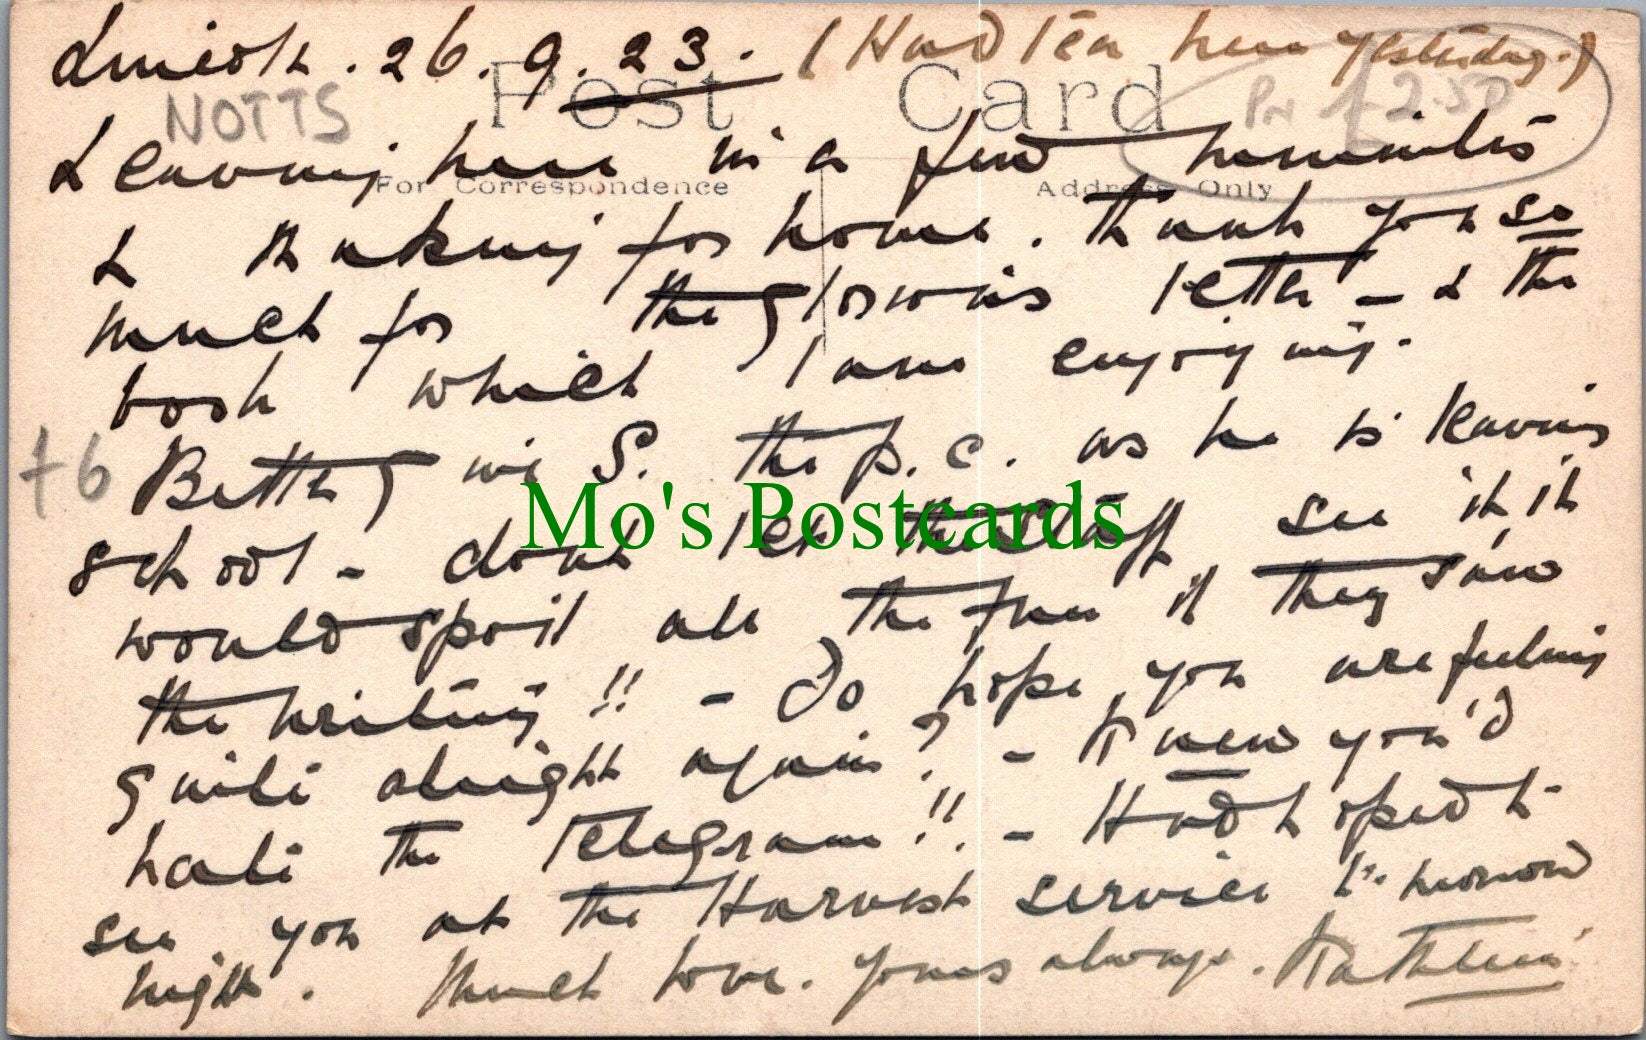 26.9.23. (Had tea here yesterday.)
NOTTS Post Card £2.50
Leaving here in a few minutes
For Correspondence Address Only
& making for home. Thank you so
much for the glorious letter - & the
book which I am enjoying.
+6 Better give S. the p.c. as he is leaving
Mo's Postcards
school - don't let the staff see it it
would spoil all the fun if they saw
the writing!! - Do hope you are feeling
quite alright again? - Knew you'd
hate the Telegram!! - Had hoped to
see you at the Harvest service to-morrow
night. Much love. Yours always. Kathleen